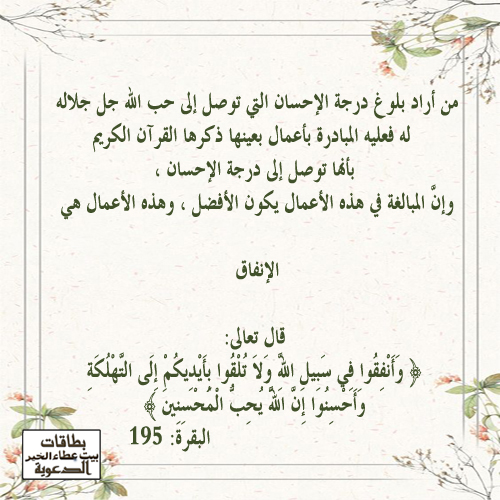 من أراد بلوغ درجة الإحسان التي توصل إلى حب الله جل جلاله
له فعليه المبادرة بأعمال بعينها ذكرها القرآن الكريم
بأنها توصل إلى درجة الإحسان ،
وإنَّ المبالغة في هذه الأعمال يكون الأفضل ، وهذه الأعمال هي
الإنفاق
قال تعالى:
﴿ وَأَنْفِقُوا فِي سَبِيلِ اللَّهِ وَلَا تُلْقُوا بِأَيْدِيكُمْ إِلَى التَّهْلُكَةِ
وَأَحْسِنُوا إِنَّ اللَّهَ يُحِبُّ الْمُحْسِنِينَ ﴾
البقرة: 195
بطاقات
بيت عطاء الخير
الدعوية